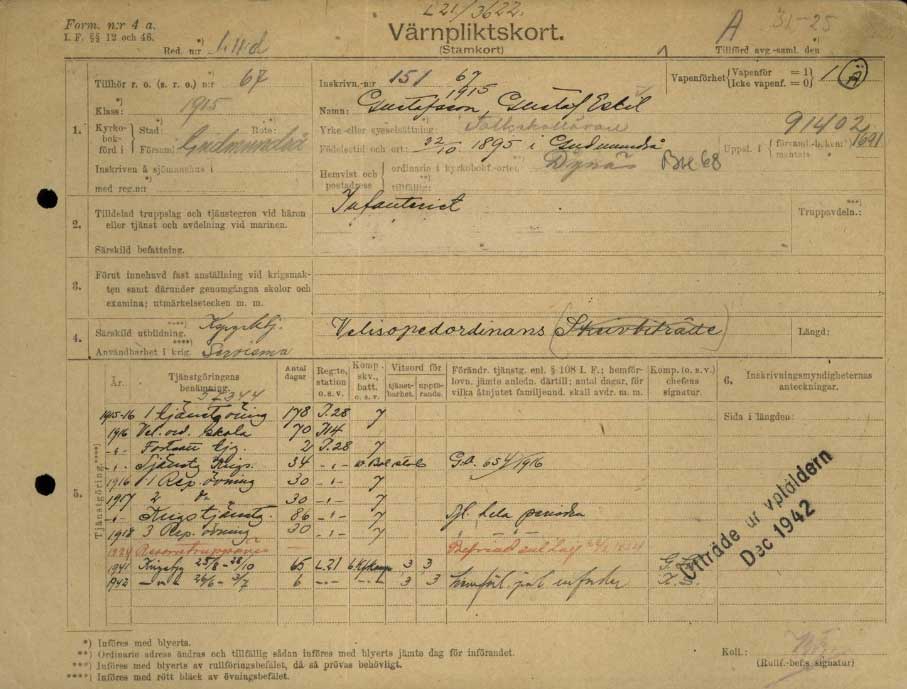 L21/3622.
Form. n:r 4 a.
I. F. §§ 12 och 46.
Red. n:r
Värnpliktskort.
(Stamkort)
A 31-25
Tillförd avg.-saml. den
1. Tillhör r. o. (s. r. o.) n:r 67
Klass: 1915
Kyrkobokförd i Stad: Rote:
Församl. Gudmundrå
Inskriven å sjömanshus i
med reg.nr:
Inskrivn.-n:r 151 67 1915
Namn: Gustafsson, Gustaf Eskil
Yrke eller sysselsättning: Folkskollärare
Födelsetid och ort: 22/10 1895 i Gudmundrå
Hemvist och postadress ordinarie i kyrkobokf.-orten: Dynäs Box 68
tillfällig:
Vapenförhet: Vapenför = 1
Icke vapenf. = 0
1 A
91402
Uppsl. i församl.-b. l. en: mantals 1691
2. Tilldelad truppslag och tjänstegren vid hären
eller tjänst och avdelning vid marinen.
Särskild befattning.
Infanterist
Truppavdeln.:
3. Förut innehavd fast anställning vid krigsmakten
samt därunder genomgångna skolor och
examina; utmärkelsetecken m. m.
4. Särskild utbildning.
Användbarhet i krig.
Velisopedordinans (Skrivbiträde)
Längd:
5. Tjänstgöring.****)
År.
Tjänstgöringens benämning.
Antal dagar
Reg:te, station o. s. v.
Komp. skv., batt. o. s. v.
Vitsord för
tjänstbarhet.
uppförande.
Förändr. tjänstg. enl. § 108 I. F.; hemförlovn.
jämte anledn. därtill; antal dagar, för
vilka åtnjutet familjeund. skall avdr. m. m.
Komp. (o. s. v.) chefens signatur.
6. Inskrivningsmyndigheternas anteckningar.
Sida i längden:
1915-16 1 tjänstgöring 178 I.28 7
1916 Vel.ord. skola 70 I14
-"- Fortsatt tjg. 2 I.28 7
-"- 34 -"- G.o. 654/1916
1916 1 Rep. övning 30 -"- 7
1917 2 D:o 30 -"- 7
-"- Krigstjänstg. 86 -"- 7 hela perioden
1918 3 Rep. övning 30 -"- 7
1924
1941 25/8 - 28/10 65 L21 3 3
1942 26/6 - 3/7 6 -"- 3 3
Utträde ur vpåldern
Dec 1942
*) Införes med blyerts.
**) Ordinarie adress ändras och tillfällig sådan införes med blyerts jämte dag för införandet.
***) Införes med blyerts av rullföringsbefälet, då så prövas behövligt.
****) Införes med rött bläck av övningsbefälet.
Koll.:
(Rullf.-bef:s signatur)